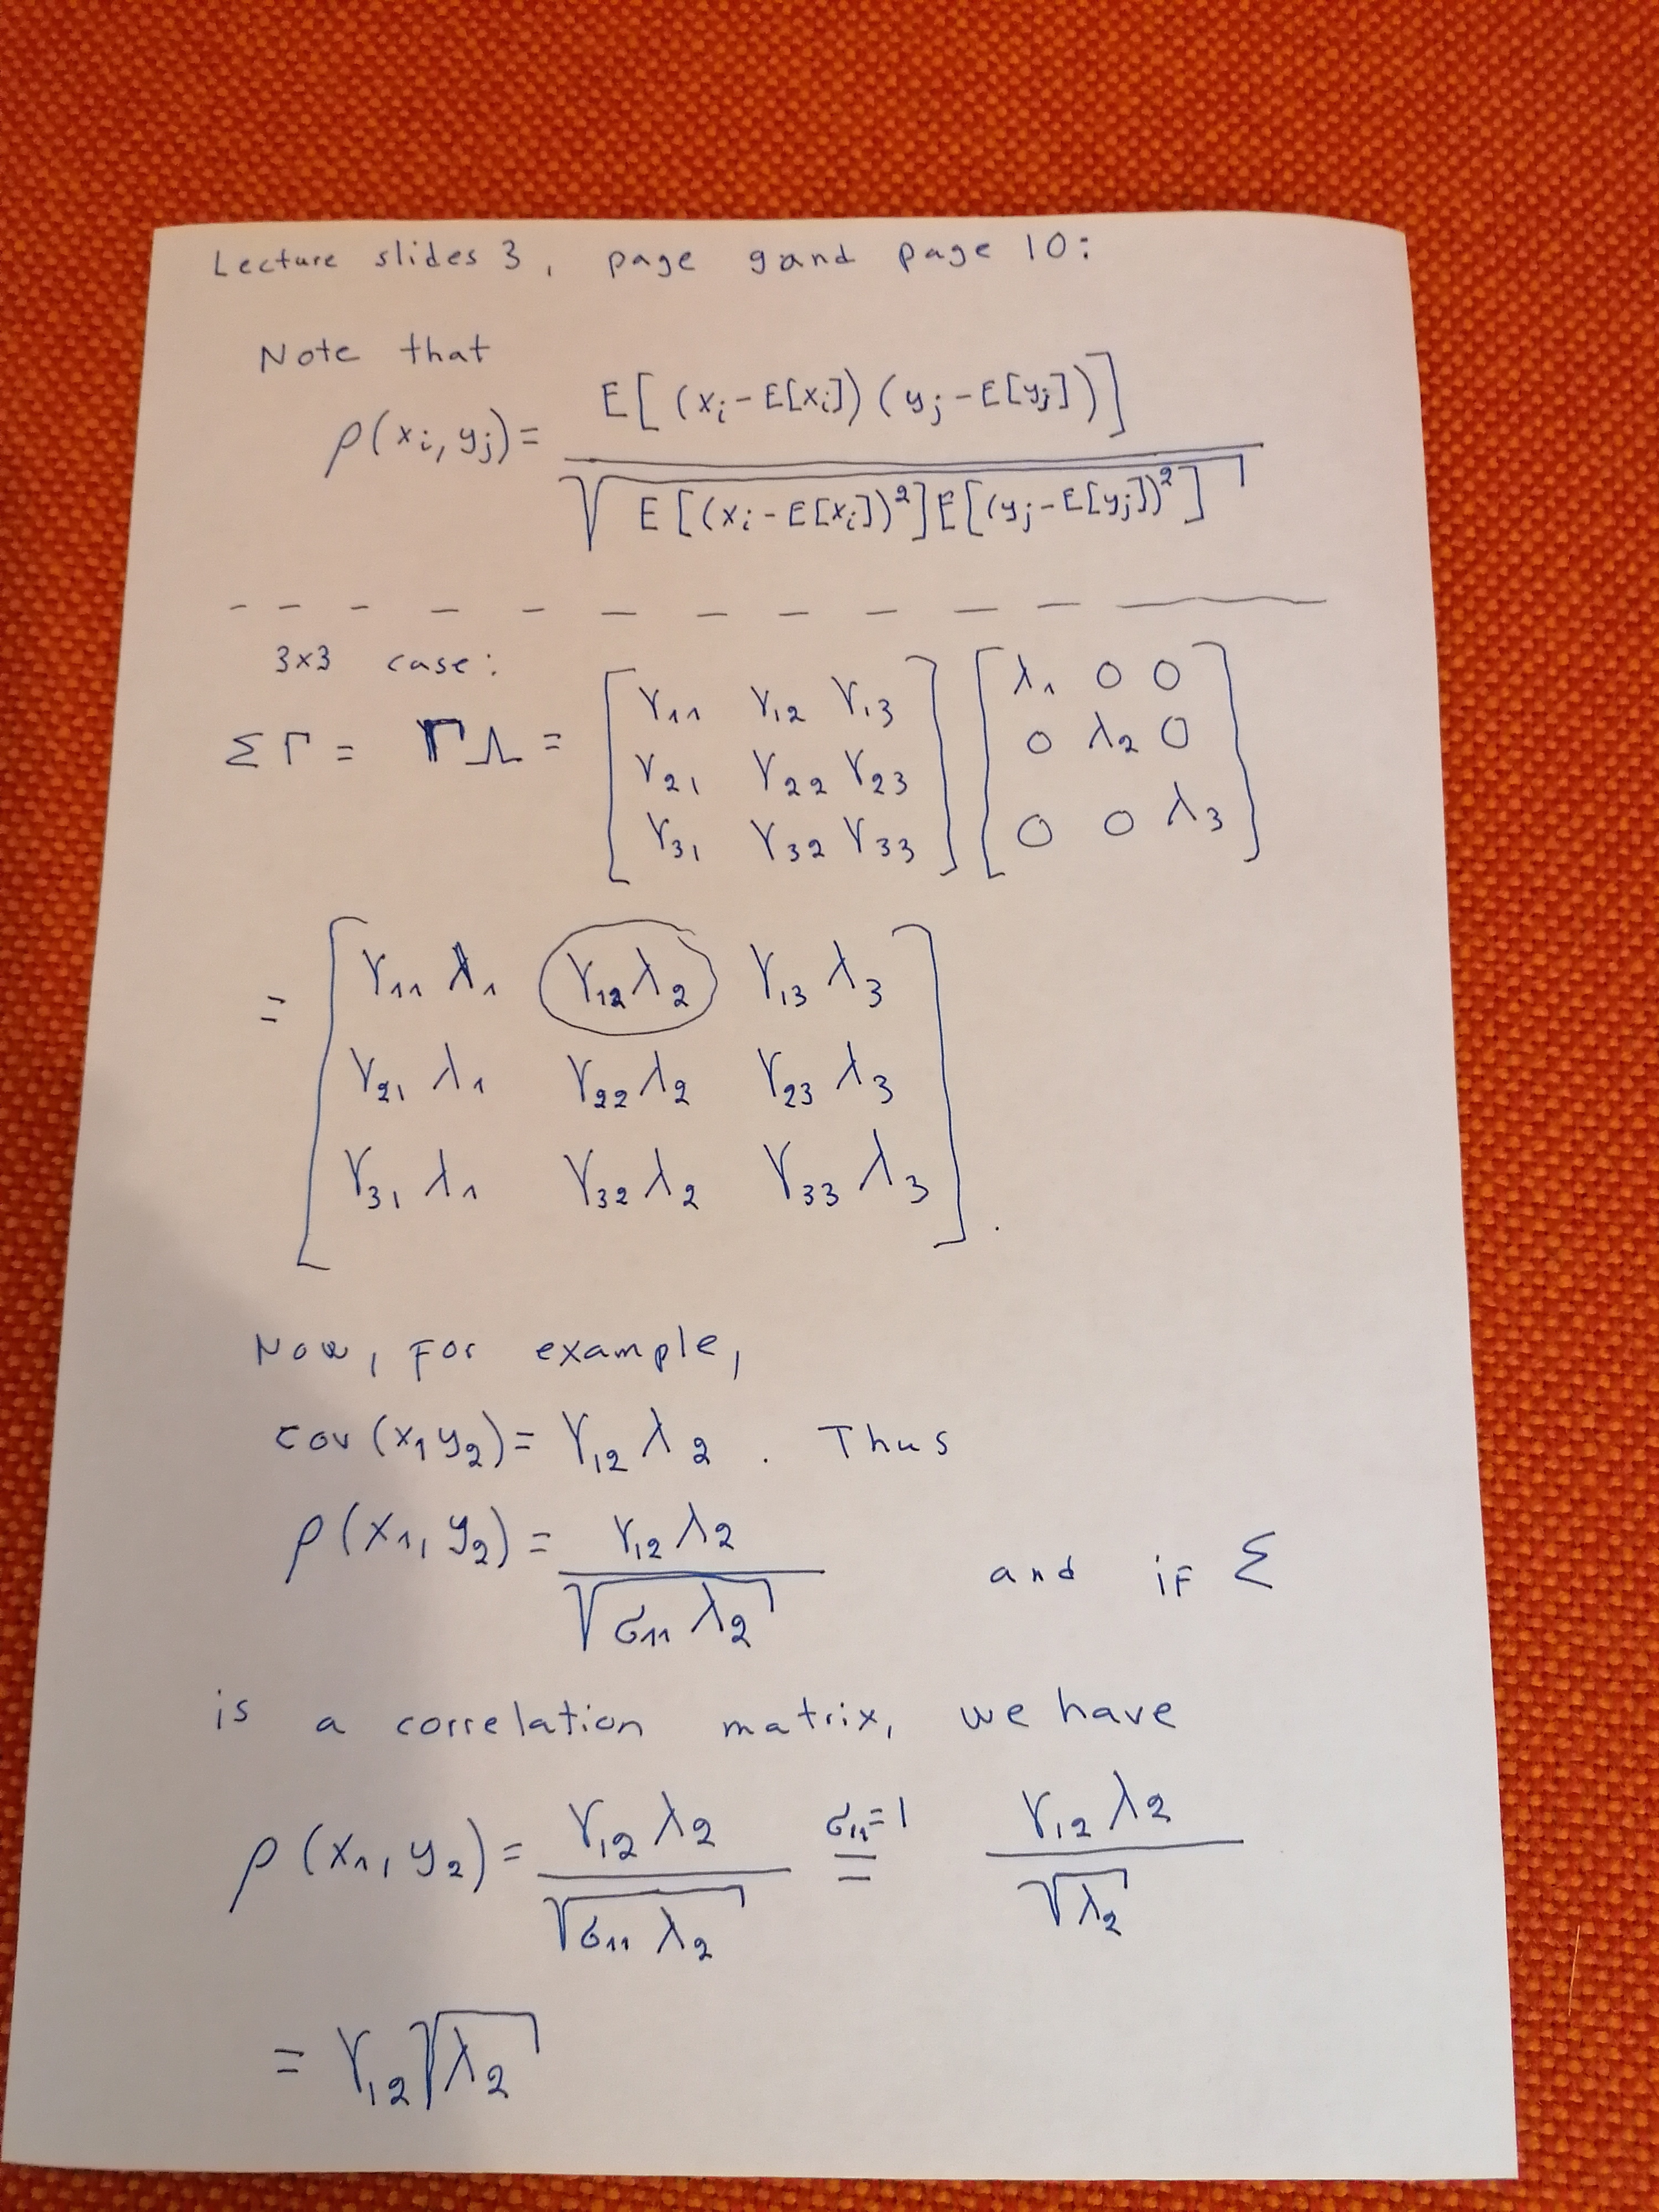 Lecture slides 3, page 9 and page 10:
Note that
ρ(xᵢ, yⱼ) = E[(xᵢ - E[xᵢ]) (yⱼ - E[yⱼ])] / √(E[(xᵢ - E[xᵢ])²] E[(yⱼ - E[yⱼ])²])
3x3 case:
ΣΓ = ΓΛ = [γ₁₁ γ₁₂ γ₁₃; γ₂₁ γ₂₂ γ₂₃; γ₃₁ γ₃₂ γ₃₃] [λ₁ 0 0; 0 λ₂ 0; 0 0 λ₃]
= [γ₁₁λ₁ γ₁₂λ₂ γ₁₃λ₃; γ₂₁λ₁ γ₂₂λ₂ γ₂₃λ₃; γ₃₁λ₁ γ₃₂λ₂ γ₃₃λ₃].
Now, for example,
cov(x₁y₂) = γ₁₂λ₂. Thus
ρ(x₁, y₂) = γ₁₂λ₂ / √(σ₁₁λ₂) and if Σ
is a correlation matrix, we have
ρ(x₁, y₂) = γ₁₂λ₂ / √(σ₁₁λ₂) =^(σ₁₁=1) γ₁₂λ₂ / √λ₂
= γ₁₂√λ₂